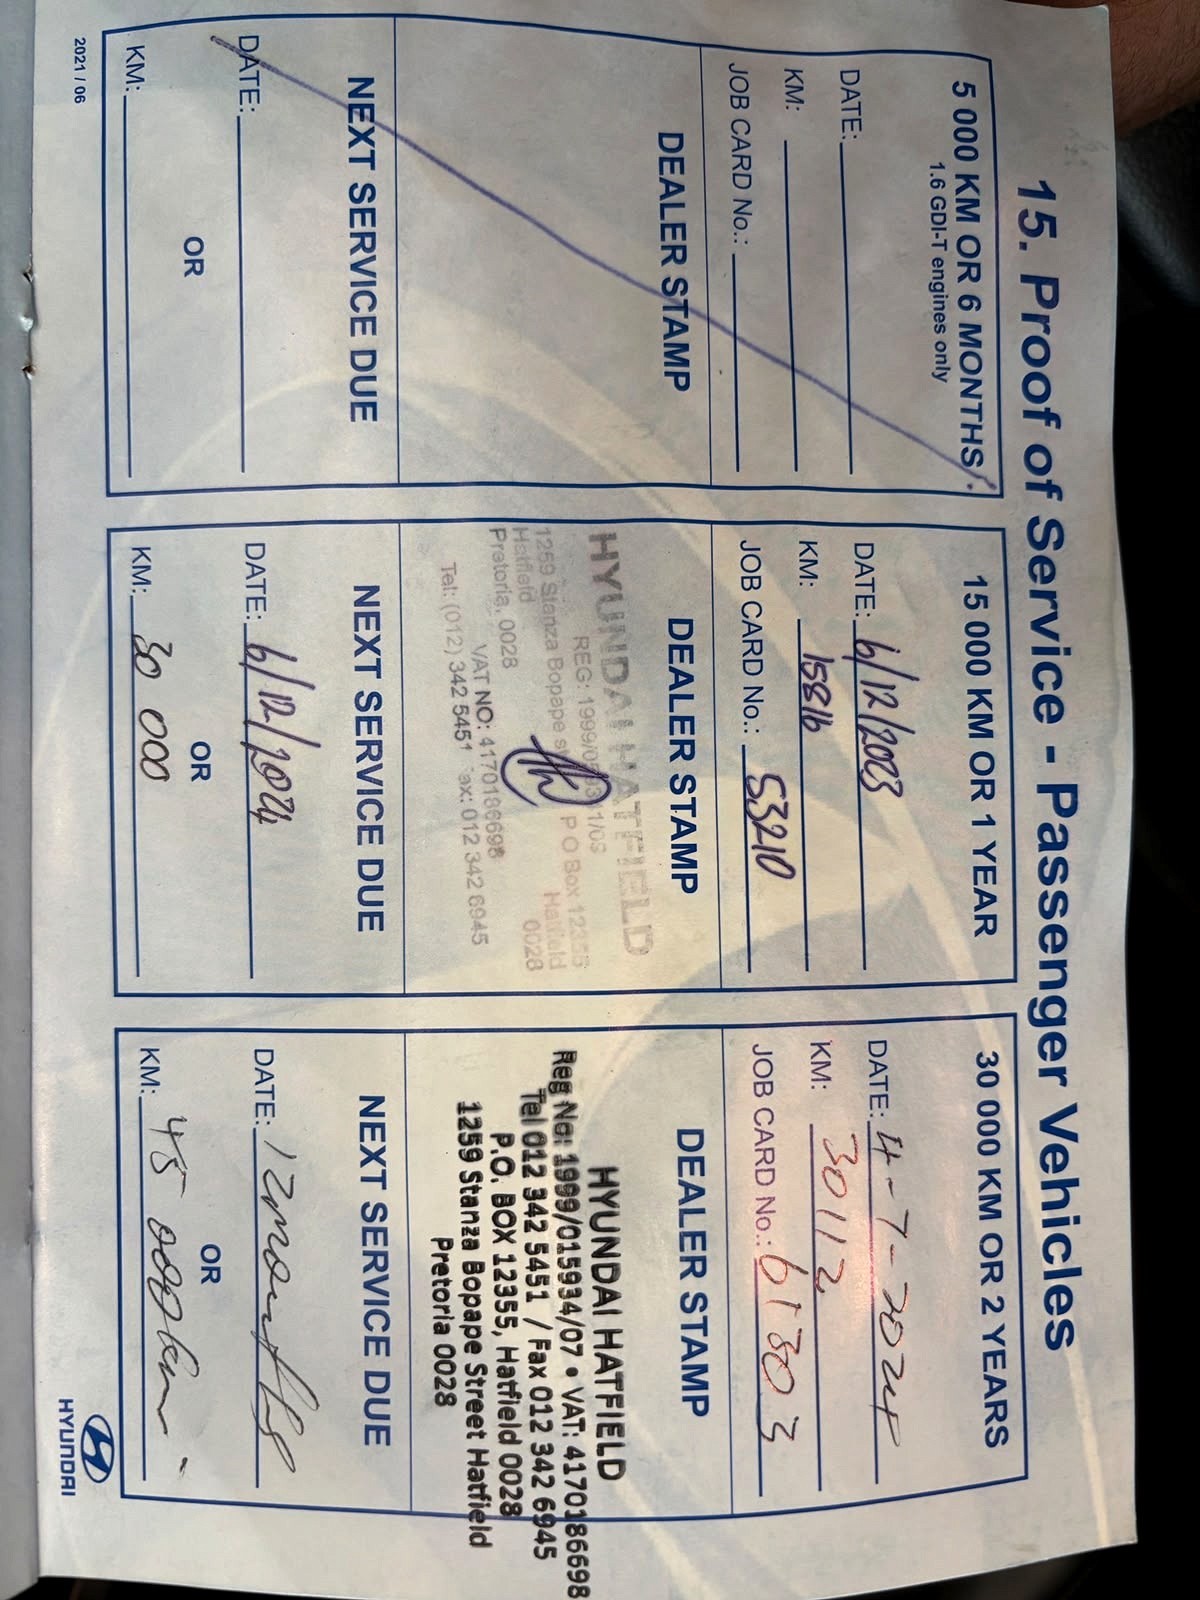 15. Proof of Service - Passenger Vehicles
5 000 KM OR 6 MONTHS
1.6 GDI-T engines only
DATE:
KM:
JOB CARD No.:
DEALER STAMP
NEXT SERVICE DUE
DATE:
OR
KM:
15 000 KM OR 1 YEAR
DATE: 6/12/2023
KM: 15816
JOB CARD No.: 53210
DEALER STAMP
HYUNDAI HATFIELD
REG: 1999/
1259 Stanza Bopape P O Box 12355
Hatfield Hatfield
Pretoria, 0028 0028
VAT NO: 4170186698
Tel: (012) 342 5451 Fax: 012 342 6945
NEXT SERVICE DUE
DATE: 6/12/2024
OR
KM: 30 000
30 000 KM OR 2 YEARS
DATE: 4-7-2024
KM: 30112
JOB CARD No.: 61303
DEALER STAMP
HYUNDAI HATFIELD
Reg No: 1999/015934/07 • VAT: 4170186698
Tel 012 342 5451 / Fax 012 342 6945
P.O. BOX 12355, Hatfield 0028
1259 Stanza Bopape Street Hatfield
Pretoria 0028
NEXT SERVICE DUE
DATE: 12months
OR
KM: 45 000km.
2021 / 06
HYUNDAI